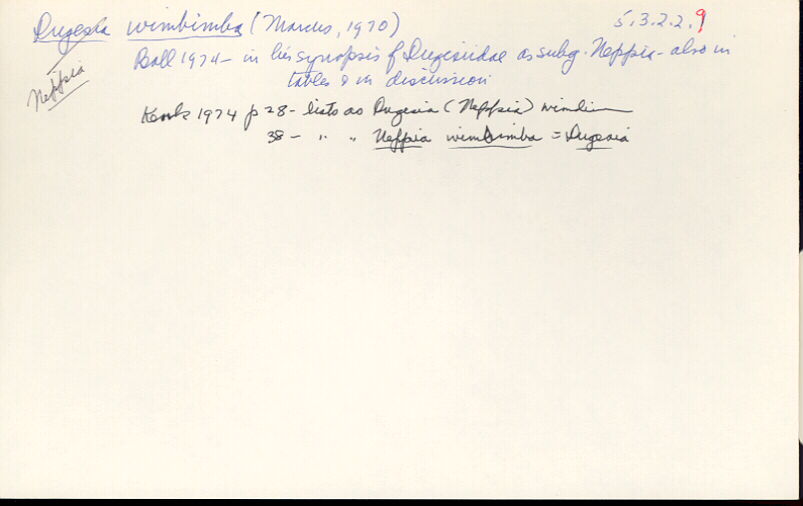 Dugesia wimbimba (Marcus, 1970) 5.3.2.2.9
Neppia
Ball 1974 - in his synopsis of Dugesiidae as subg. Neppia - also in
tables & in discussion
Kenk 1974 p 28 - lists as Dugesia (Neppia)
38 - " " Neppia wimbimba = Dugesia